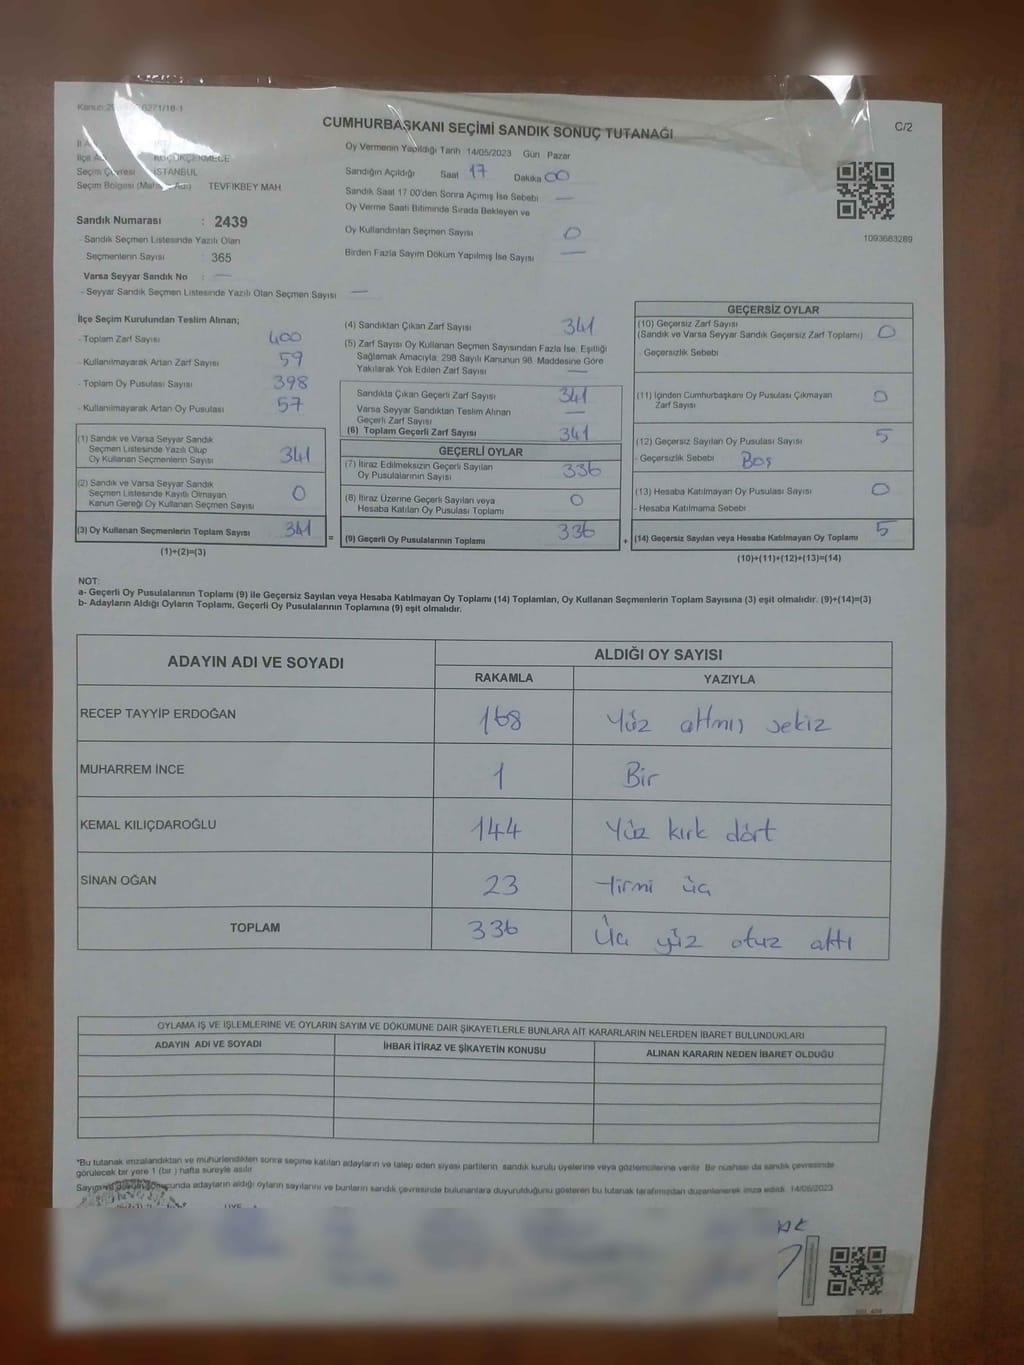 CUMHURBAŞKANI SEÇİMİ SANDIK SONUÇ TUTANAĞI
C/2
Oy Vermenin Yapıldığı Tarih 14/05/2023 Gün Pazar
KÜÇÜKÇEKMECE
Seçim Çevresi İSTANBUL
Seçim Bölgesi TEVFİKBEY MAH
Sandığın Açıldığı Saat 17 Dakika 00
Sandık Saat 17 00'den Sonra Açımış İse Sebebi —
Oy Verme Saati Bitiminde Sırada Bekleyen ve
Oy Kullandırılan Seçmen Sayısı 0
Birden Fazla Sayım Döküm Yapılmış İse Sayısı —
1093663289
Sandık Numarası : 2439
- Sandık Seçmen Listesinde Yazılı Olan
Seçmenlerin Sayısı : 365
Varsa Seyyar Sandık No : —
- Seyyar Sandık Seçmen Listesinde Yazılı Olan Seçmen Sayısı —
İlçe Seçim Kurulundan Teslim Alınan;
- Toplam Zarf Sayısı 400
- Kullanılmayarak Artan Zarf Sayısı 59
- Toplam Oy Pusulası Sayısı 398
- Kullanılmayarak Artan Oy Pusulası 57
(1) Sandık ve Varsa Seyyar Sandık
Seçmen Listesinde Yazılı Olup
Oy Kullanan Seçmenlerin Sayısı 341
(2) Sandık ve Varsa Seyyar Sandık
Seçmen Listesinde Kayıtlı Olmayan
Kanun Gereği Oy Kullanan Seçmen Sayısı 0
(3) Oy Kullanan Seçmenlerin Toplam Sayısı 341
(1)+(2)=(3)
=
(4) Sandıktan Çıkan Zarf Sayısı 341
(5) Zarf Sayısı Oy Kullanan Seçmen Sayısından Fazla İse, Eşitliği
Sağlamak Amacıyla; 298 Sayılı Kanunun 98. Maddesine Göre
Yakılarak Yok Edilen Zarf Sayısı —
Sandıkta Çıkan Geçerli Zarf Sayısı 341
Varsa Seyyar Sandıktan Teslim Alınan
Geçerli Zarf Sayısı —
(6) Toplam Geçerli Zarf Sayısı 341
GEÇERLİ OYLAR
(7) İtiraz Edilmeksizin Geçerli Sayılan
Oy Pusulalarının Sayısı 336
(8) İtiraz Üzerine Geçerli Sayılan veya
Hesaba Katılan Oy Pusulası Toplamı 0
(9) Geçerli Oy Pusulalarının Toplamı 336
+
GEÇERSİZ OYLAR
(10) Geçersiz Zarf Sayısı
(Sandık ve Varsa Seyyar Sandık Geçersiz Zarf Toplamı) 0
- Geçersizlik Sebebi
(11) İçinden Cumhurbaşkanı Oy Pusulası Çıkmayan
Zarf Sayısı 0
(12) Geçersiz Sayılan Oy Pusulası Sayısı 5
- Geçersizlik Sebebi Boş
(13) Hesaba Katılmayan Oy Pusulası Sayısı 0
- Hesaba Katılmama Sebebi
(14) Geçersiz Sayılan veya Hesaba Katılmayan Oy Toplamı 5
(10)+(11)+(12)+(13)=(14)
NOT:
a- Geçerli Oy Pusulalarının Toplamı (9) ile Geçersiz Sayılan veya Hesaba Katılmayan Oy Toplamı (14) Toplamları, Oy Kullanan Seçmenlerin Toplam Sayısına (3) eşit olmalıdır. (9)+(14)=(3)
b- Adayların Aldığı Oyların Toplamı, Geçerli Oy Pusulalarının Toplamına (9) eşit olmalıdır.
ADAYIN ADI VE SOYADI
ALDIĞI OY SAYISI
RAKAMLA YAZIYLA
RECEP TAYYİP ERDOĞAN 168 Yüz altmış sekiz
MUHARREM İNCE 1 Bir
KEMAL KILIÇDAROĞLU 144 Yüz kırk dört
SİNAN OĞAN 23 Yirmi üç
TOPLAM 336 Üç yüz otuz altı
OYLAMA İŞ VE İŞLEMLERİNE VE OYLARIN SAYIM VE DÖKÜMÜNE DAİR ŞİKAYETLERLE BUNLARA AİT KARARLARIN NELERDEN İBARET BULUNDUKLARI
ADAYIN ADI VE SOYADI İHBAR İTİRAZ VE ŞİKAYETİN KONUSU ALINAN KARARIN NEDEN İBARET OLDUĞU
*Bu tutanak imzalandıktan ve mühürlendikten sonra seçime katılan adayların ve talep eden siyasi partilerin sandık kurulu üyelerine veya gözlemcilerine verilir. Bir nüshası da sandık çevresinde
görülecek bir yere 1 (bir ) hafta süreyle asılır
adayların aldığı oyların sayılarını ve bunların sandık çevresinde bulunanlara duyurulduğunu gösteren bu tutanak tarafımızdan düzenlenerek imza edildi. 14/05/2023